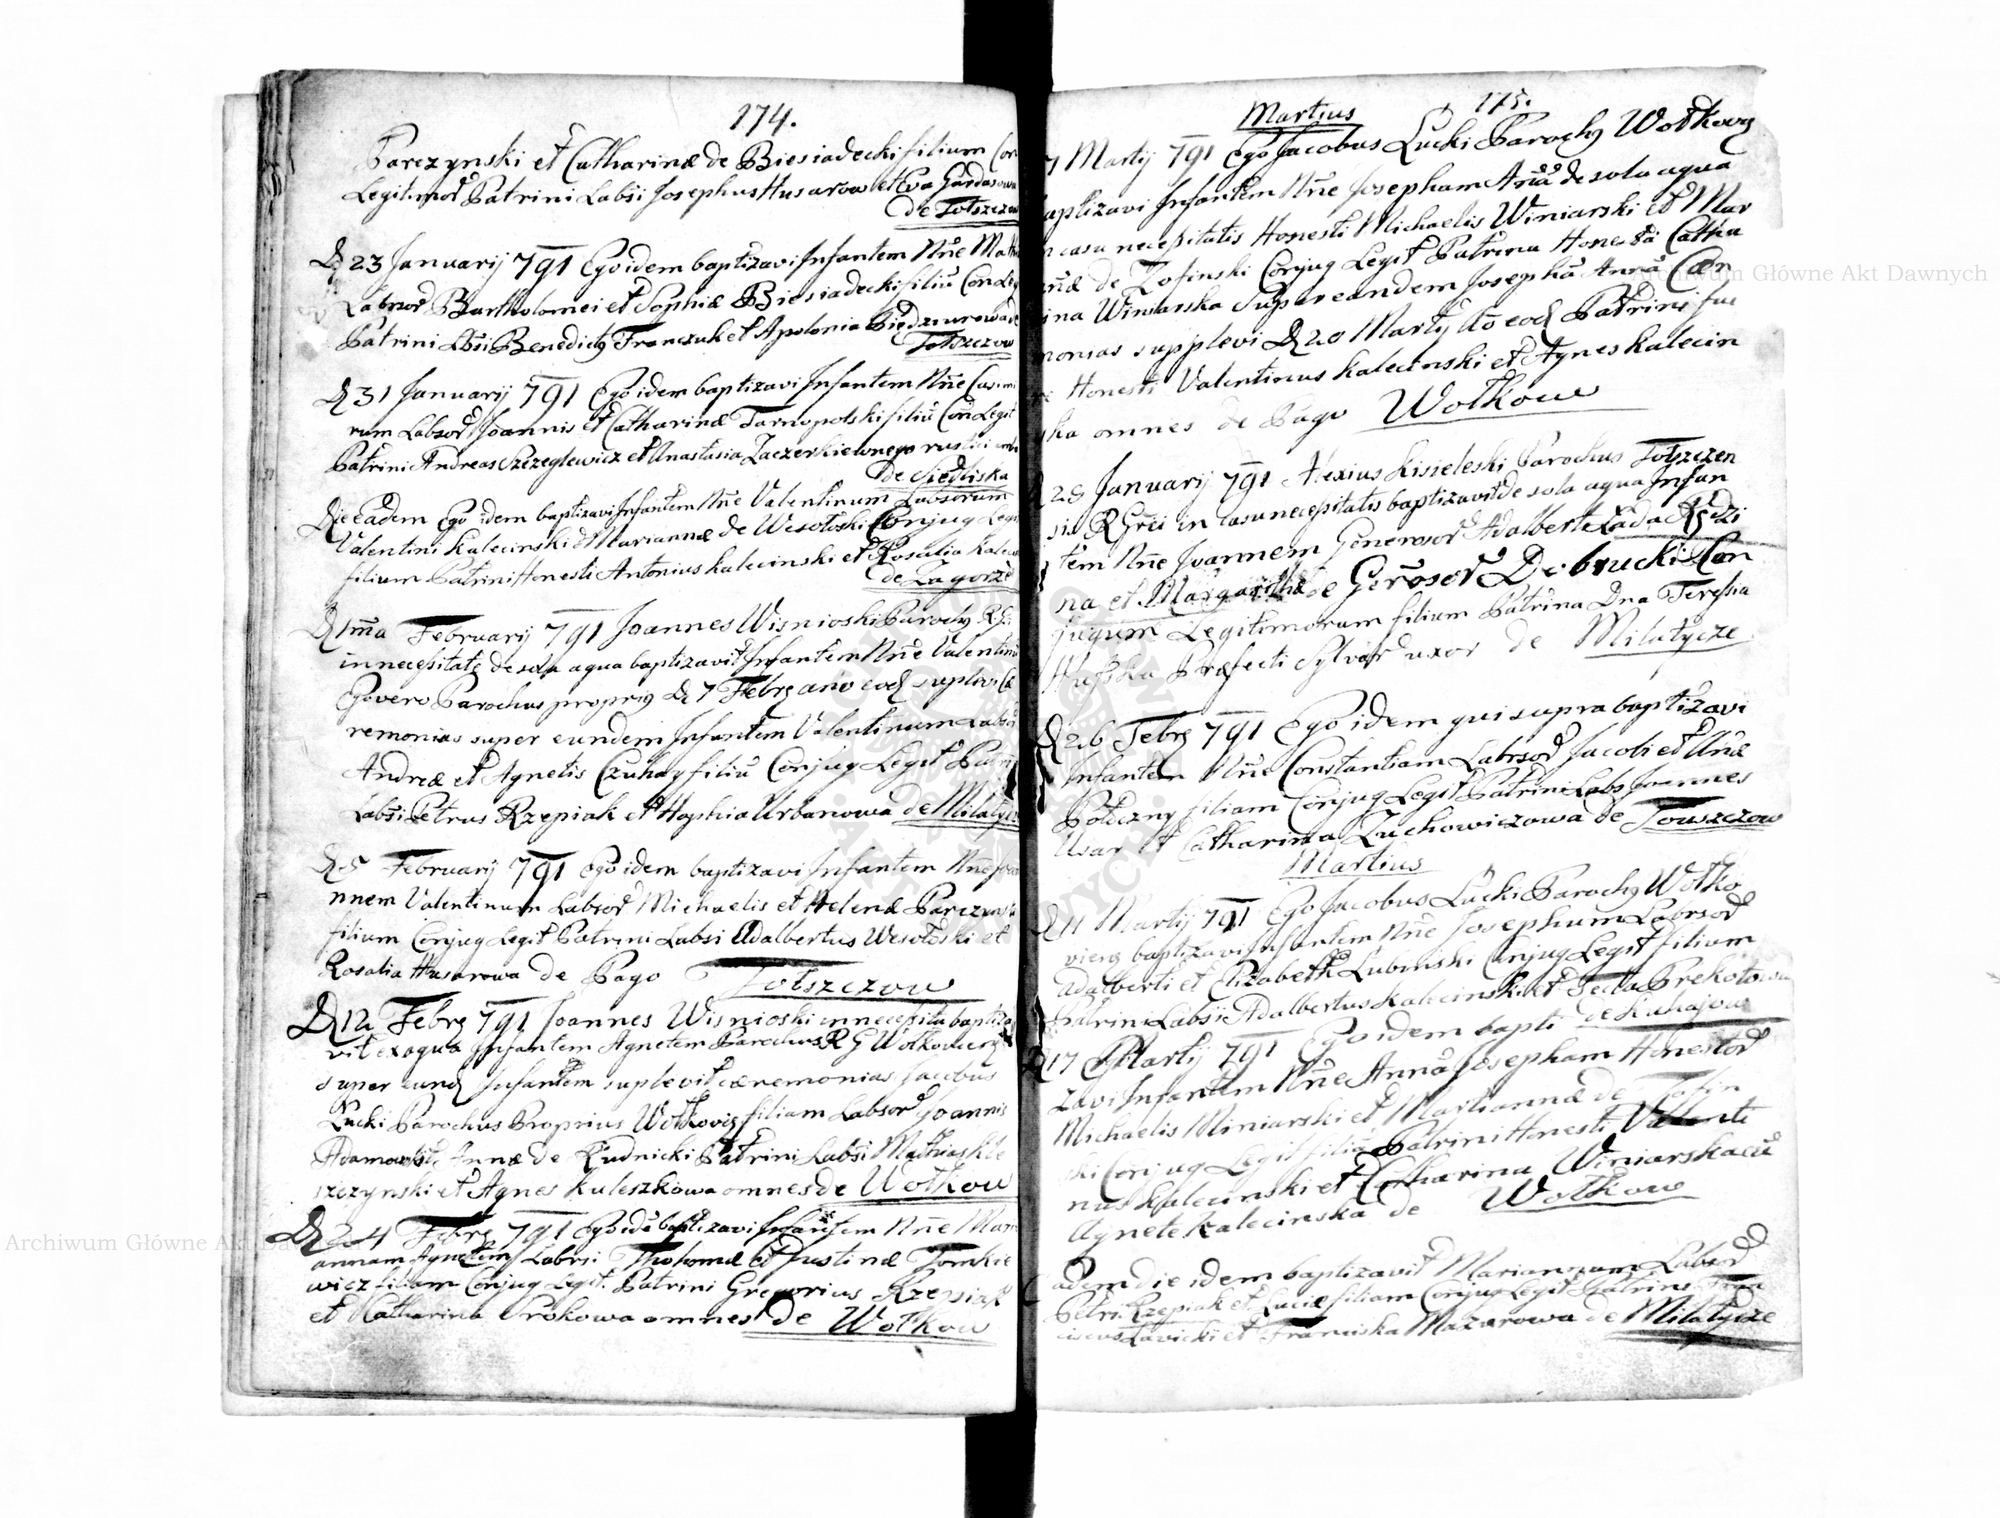 174.
Parczynski et Catharinæ de Biesiadecki filium Con
Legitimor Patrini Labsi Josephus Husarow et Eva Gardasowa
de Tołszczow
D 23 Januarij 791 Ego idem baptizavi Infantem Nñe Math
Labsor Bartholomei et Sophiæ Biesiadecki filiũ Con Leg
Patrini Lbsi Benedictg Franczuk et Apolonia
Tołszczow
D 31 Januarij 791 Ego idem baptizavi Infantem Nñe Casimi
rum Labsor Joannis et Catharinæ Tarnopolski filiũ Coñ Legit
Patrini Andreas Szczeglewicz et Anastasia
de Siedliska
Die eadem Ego idem baptizavi Infantem Nñe Valentinum Labsorum
Valentini Kalecinski et Mariannæ de Wesołoski Conjug Legit
filium Patrini Honesti Antonius Kalecinski et Rosalia
de Zagorze
D 1ma Februarij 791 Joannes Wisnioski Parochg
in necessitate de sola aqua baptizavit Infantem Nñe Valentinũ
Ego vero Parochus proprig D 7 Febrg año eod suplevi Cæ
remonias super eundem Infantem Valentinum Labsor
Andreæ et Agnetis Czuhay filiũ Conjug Legit Patri
Labsi Petrus Rzepiak et Hophia Urbanowa de Milatycze
D 5 Februarij 791 Ego idem baptizavi Infantem Nñe Joa
nnem Valentinum Labsor Michaelis et Helenæ Parczynski
filium Conjug Legit Patrini Labsi Adalbertus Wesołoski et
Rosalia Husarowa de Pago Tołszczow
D 12 Febrg 791 Joannes Wisnioski in necessitate baptiza
vit ex aqua Infantem Agnetem Parochus R G Wołkoviens
super eund Infantem suplevit cæremonias Jacobus
Łucki Parochus Proprius Wołkovig filiam Labsor Joannis
et Annæ de Rudnicki Patrini Labsi Mathias Kle
szczynski et Agnes Kuleszkowa omnes de Wołkow
D 24 Febrg 791 Ego idẽ baptizavi Infantem Nñe Mari
annam Agnetem Labrsi Thohomæ et Justinæ Tomkie
wicz filiam Conjug Legit. Patrini Gregorius Rzepiak
et Katharina Prokowa omnes de Wołkow
175.
Martius
7 Martij 791 Ego Jacobus Łucki Parochg Wołkovig
baptizavi Infantem Nñe Josepham Añã de sola aqua
in casu necessitatis Honesti Michaelis Winiarski et Mar
de Zofinski Conjug Legit Patrina Honesta Catha
rina Winiarska Super eandem Josephã Annã Cær
monias supplevi D 20 Martij Ao eod Patrini fue
re Honesti Valentinus Kalecinski et Agnes Kalecin
ska omnes de Pago Wołkow
25 Januarij 791 Alexius Kisieleski Parochus Tołszczen
sis R Græi in casu necessitatis baptizavit de sola aqua Infan
tem Nñe Joannem Generosor Adalberti Łada
na et Margaritha de Gerosor Dobrucki Con
jugum Legitimorum filium Patrina Dna Teressia
Husska Præfecti Sylvar uxor de Milatycze
D 26 Febrg 791 Ego idem qui supra baptizavi
Infantem Nñe Constantiam Labrsor Jacobi et Añæ
filiam Conjug Legit Patrini Labs Joannes
Usar et Catharina Zuchowiczowa de Towszczow
Martius
D 11 Martij 791 Ego Jacobus Łucki Parochg Wołko
vieng baptizavi Infantem Nñe Josephum Labrsor
Adalberti et Elizabeth Lubinski Conjug Legit filium
Patrini Labsi Adalbertus Kalecinski et Tecla
de Kuhajow
D 17 Martij 791 Ego idem bapti
zavi Infantem Nñe Annã Josepham Honestor
Michaelis Winiarski et Mariannæ de Zofin
ski Conjug Legit filiã Patrini Honesti Valenti
nus Kalecinski et Catharina Winiarska cũ
Agnete Kalecinska de Wołkow
Eadem die idem baptizavit Mariannam Labsor
Petri Rzepiak et Luciæ filiam Conjug Legit Patrini Fran
ciscus Ławicki et Franciska Mazurowa de Milatycze
Archiwum Główne Akt Dawnych